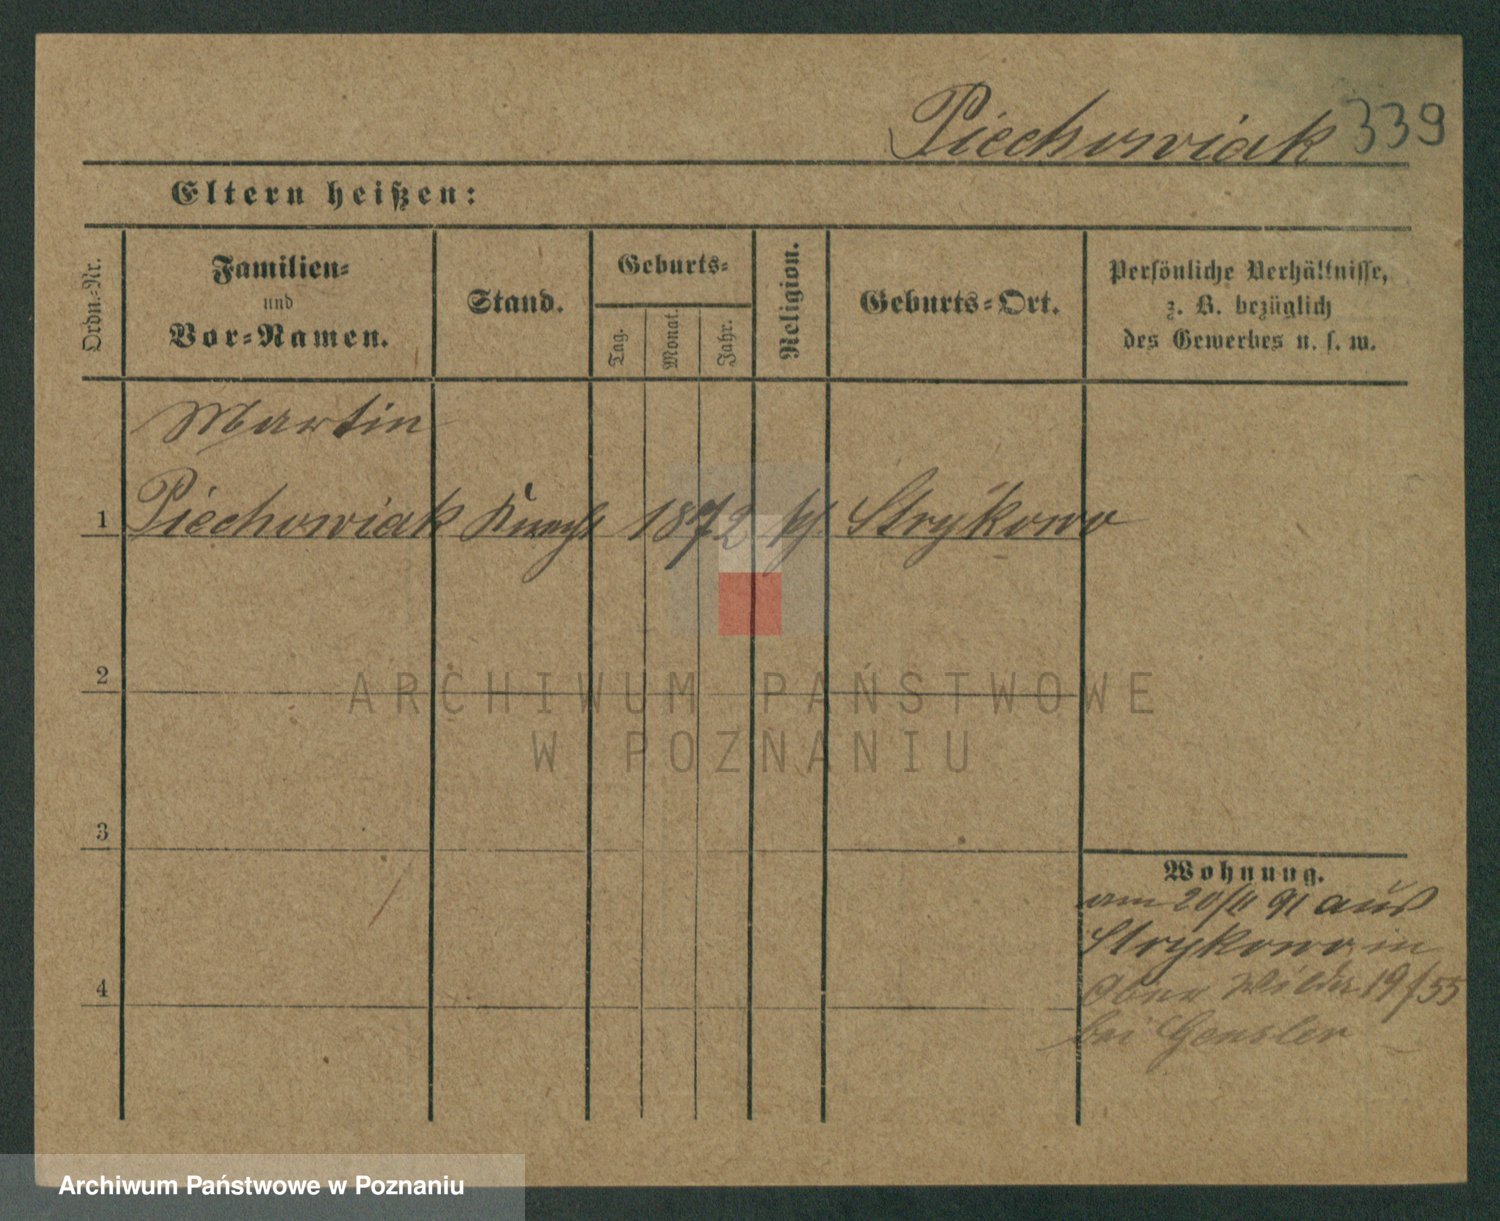 Piechowiak 339
Eltern heißen:
Ordn.-Nr.
Familien-
und
Vor-Namen.
Stand.
Geburts-
Tag.
Monat.
Jahr.
Religion.
Geburts-Ort.
Persönliche Verhältnisse,
z. B. bezüglich
des Gewerbes u. s. w.
Martin
1 Piechowiak Knecht 1872 kth. Strykowo
2
ARCHIWUM PAŃSTWOWE
W POZNANIU
3
Wohnung.
am 20/11 91 aus
Strykowo in
4
Ober Wilda 19/55
bei Gensler
Archiwum Państwowe w Poznaniu